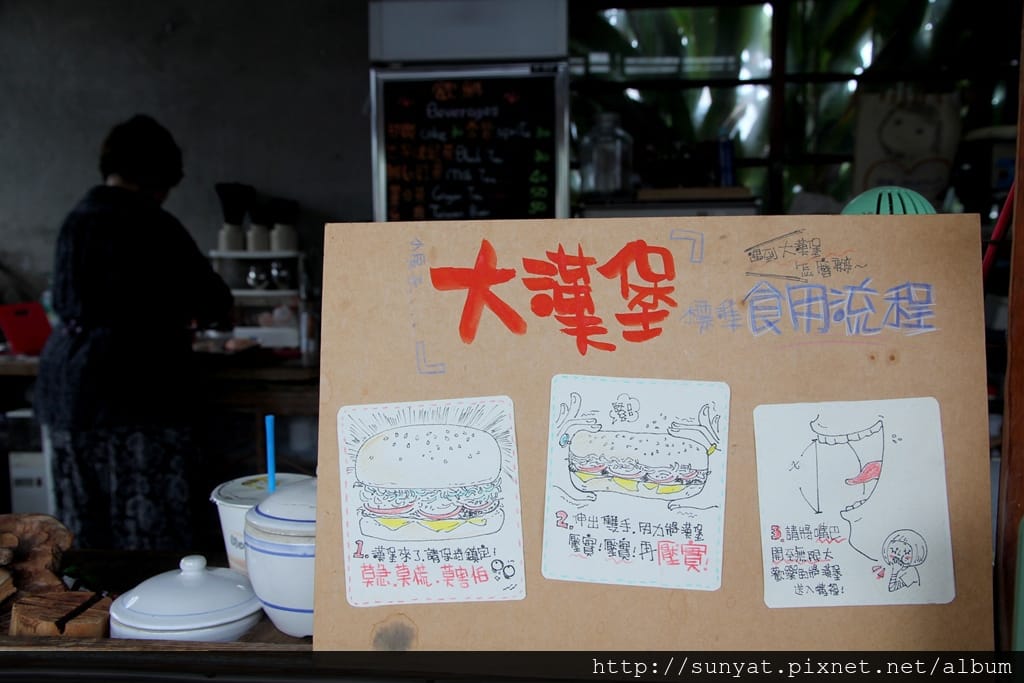 Beverages
Coke
大漢堡
遇到大漢堡
怎麼辦~
標準食用流程
1. 漢堡來了,請保持鎮定!
莫急、莫慌、莫害怕
2. 伸出雙手,用力將漢堡
壓實!壓實!再壓實!
x
3. 請將嘴巴
開至無限大
歡樂的將漢堡
送入嘴裡!
http://sunyat.pixnet.net/album